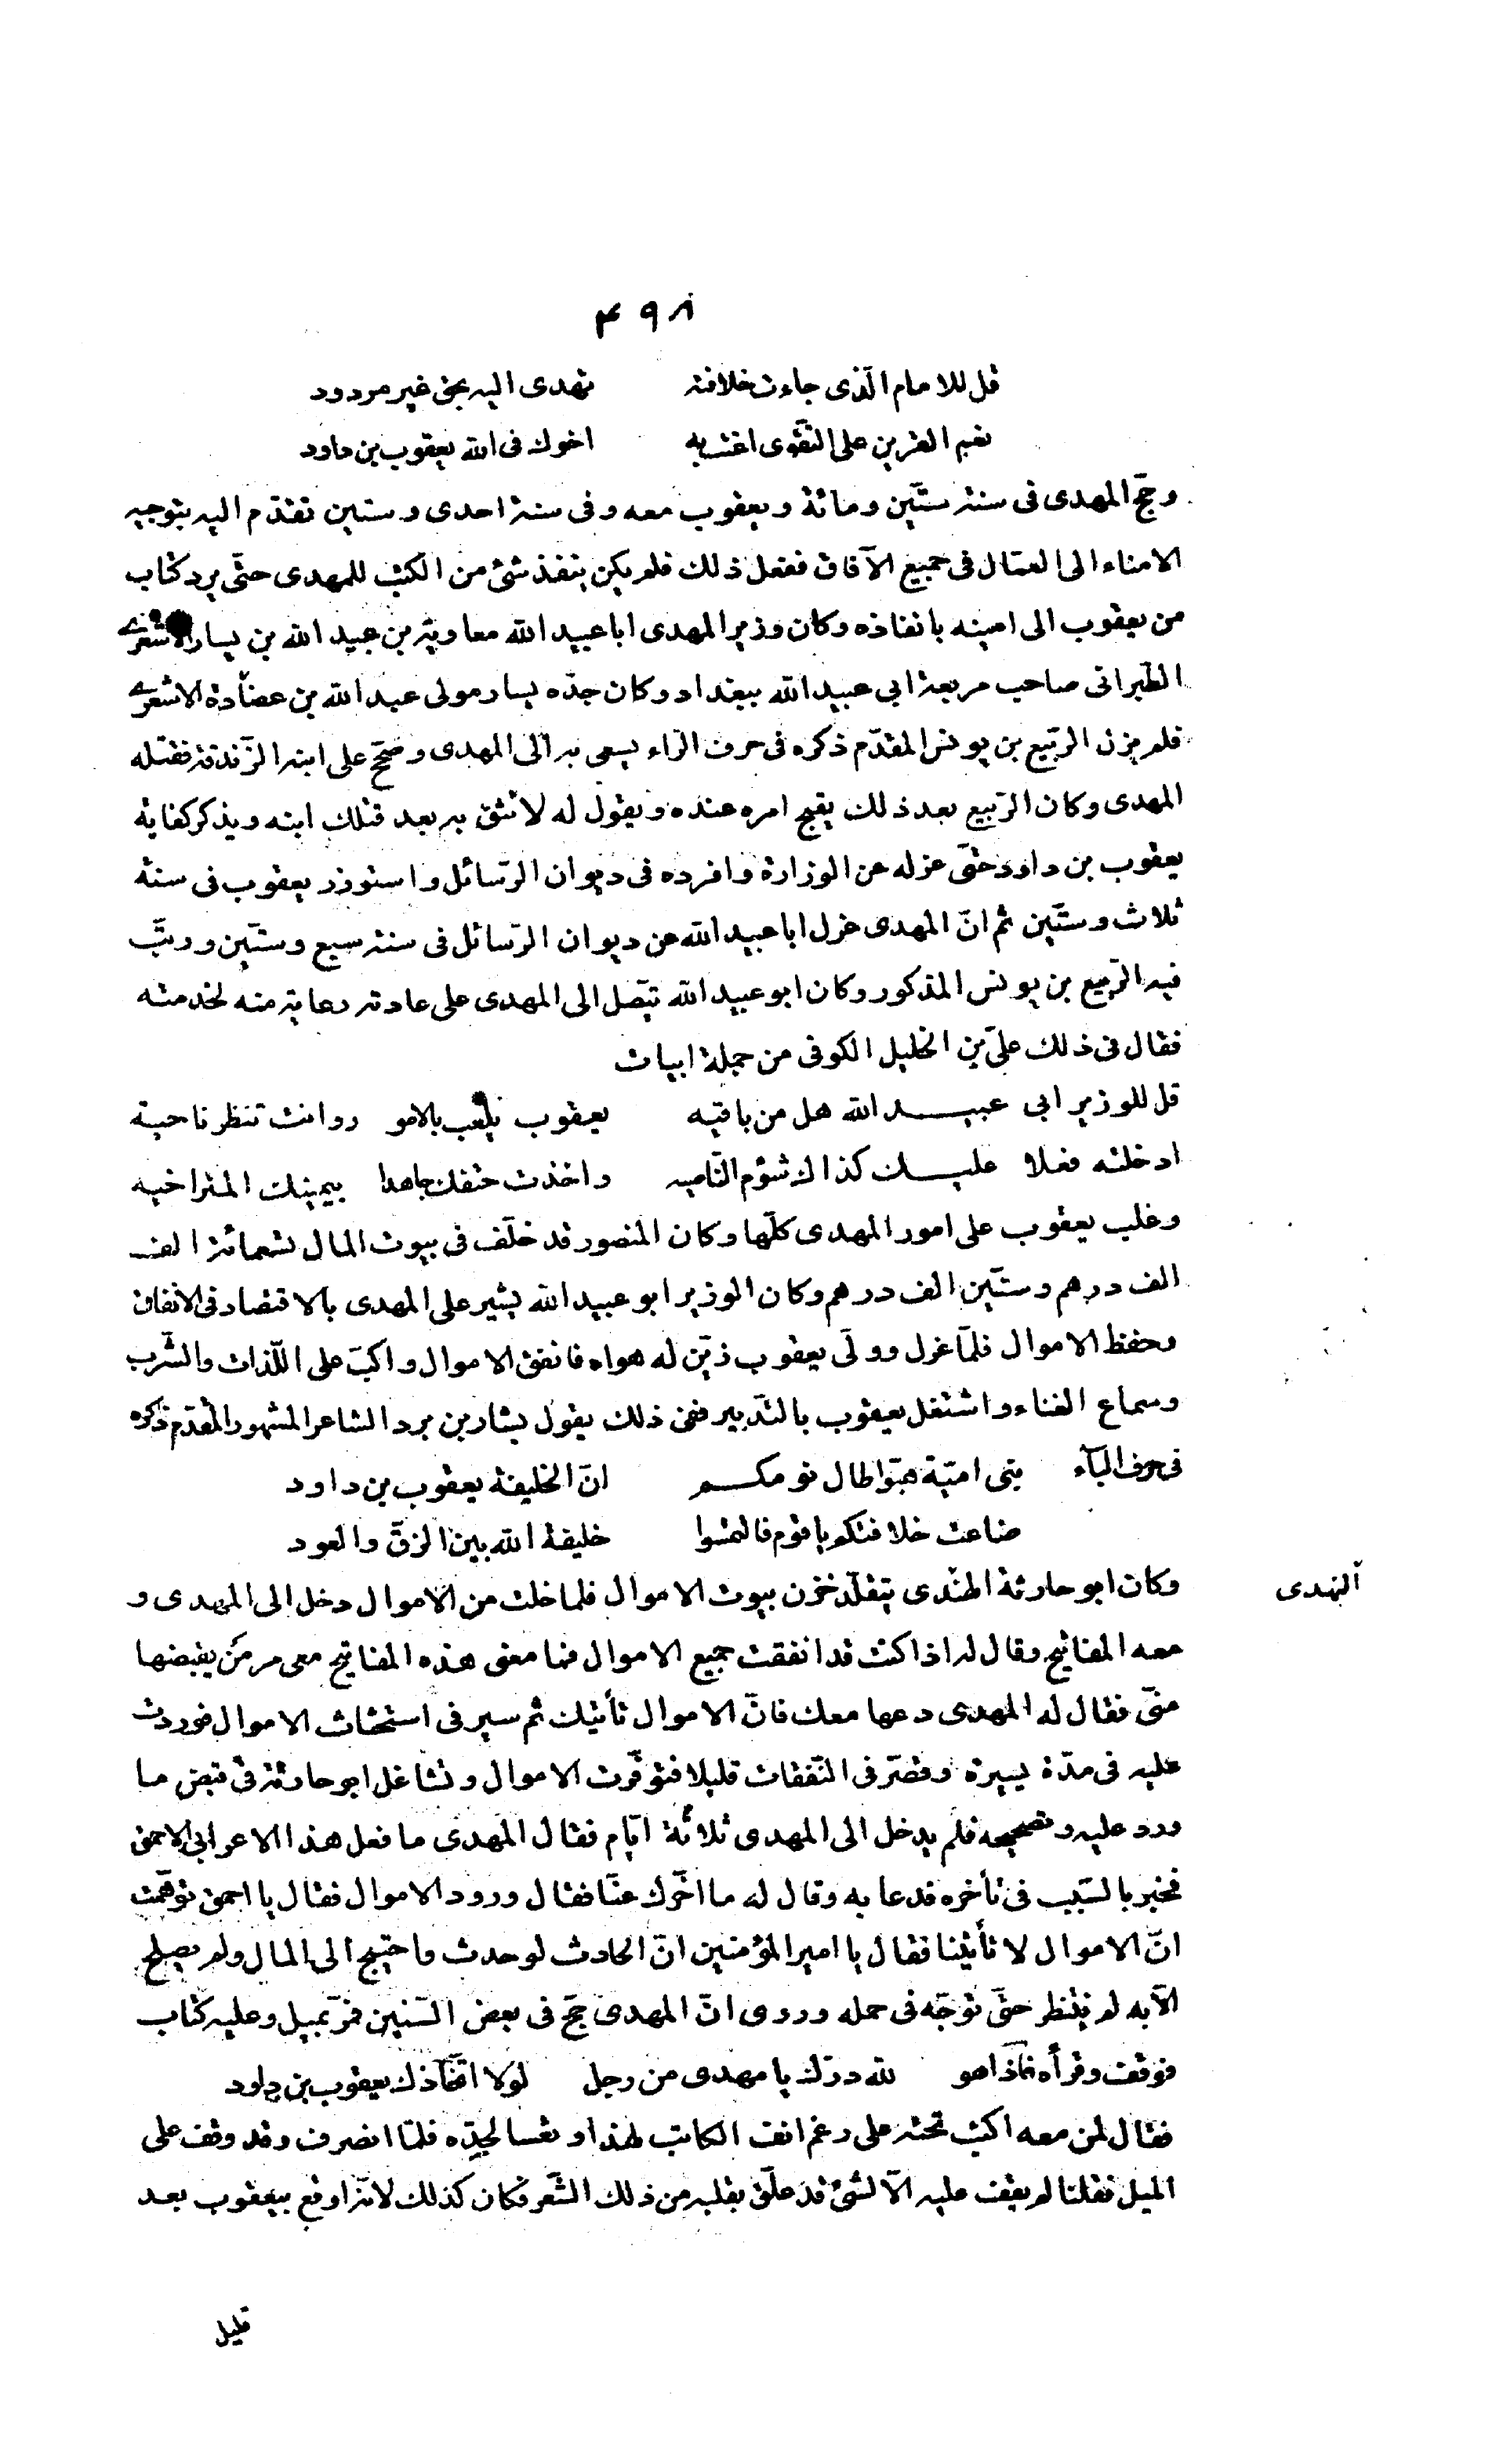 ۴۹۸
قل للامام الّذى جاءت خلافته تهدى اليه بحق غير مردود
نعم القرين على التّقوى اعنت به اخوك فى الله يعقوب بن داود
وحجّ المهدى فى سنة ستّين ومائة ويعقوب معه وفى سنة احدى وستين تقدّم اليه بتوجيه
الامناء الى العمّال فى جميع الآفاق ففعل ذلك فلم يكن ينفذ شئ من الكتب للمهدى حتّى يرد كتاب
من يعقوب الى امينه بانفاذه وكان وزير المهدى ابا عبيد الله معاوية بن عبيد الله بن يسار الاشعرى
الطّبرانى صاحب مربعة ابى عبيد الله ببغداد وكان جدّه يسار مولى عبد الله بن عضاده الاشعرى
فلم يزل الرّبيع بن يونس المقدّم ذكره فى حرف الرّاء يسعى به الى المهدى وصحّح على ابنه الزّندقة فقتله
المهدى وكان الرّبيع بعد ذلك يقبح امره عنده ويقول له لا تثق به بعد قتلك ابنه ويذكر كفاية
يعقوب بن داود حتّى عزله عن الوزارة وافرده فى ديوان الرّسائل واستوزر يعقوب فى سنة
ثلاث وستّين ثم انّ المهدى عزل ابا عبيد الله عن ديوان الرّسائل فى سنة سبع وستّين ورتّب
فيه الرّبيع بن يونس المذكور وكان ابو عبيد الله يتّصل الى المهدى على عادته رعاية منه لخدمته
فقال فى ذلك علىّ بن الخليل الكوفى من جملة ابيات
قل للوزير ابى عبيد الله هل من باقيه يعقوب يلعب بالامو ر وانت تنظر ناحية
ادخلته فعلا عليك كذاك شؤم النّاصيه واخذت حتفك جاهدا بيمينك المتراخيه
وغلب يعقوب على امور المهدى كلّها وكان المنصور قد خلّف فى بيوت المال تسعمائة الف
الف درهم وستّين الف درهم وكان الوزير ابو عبيد الله يشير على المهدى بالاقتصاد فى الانفاق
وحفظ الاموال فلمّا عزل وولّى يعقوب زيّن له هواه فانفق الاموال واكبّ على اللّذات والشّرب
وسماع الغناء واشتغل يعقوب بالتّدبير ففى ذلك يقول بشار بن برد الشاعر المشهور المقدّم ذكره
فى حرف البآء بنى اميّة هبّوا طال نومكم انّ الخليفة يعقوب بن داود
ضاعت خلافتكم يا قوم فالتمسوا خليفة الله بين الزقّ والعود
وكان ابو حارثة الهندى يتقلّد خزن بيوت الاموال فلما خلت من الاموال دخل الى المهدى و
النهدى
معه المفاتيح وقال له اذا كنت قد انفقت جميع الاموال فما معنى هذه المفاتيح معى مر من يقبضها
منّى فقال له المهدى دعها معك فانّ الاموال تأتيك ثم سير فى استحثاث الاموال فوردت
عليه فى مدّة يسيرة وقصّر فى النّفقات قليلا فتوفّرت الاموال وتشاغل ابو حارثة فى قبض ما
ورد عليه وتصحيحه فلم يدخل الى المهدى ثلاثة ايّام فقال المهدى ما فعل هذا الاعرابى الاحمق
فخبر بالسّبب فى تأخره فدعا به وقال له ما اخّرك عنّا فقال ورود الاموال فقال يا احمق توهّمت
انّ الاموال لا تأتينا فقال يا امير المؤمنين انّ الحادث لو حدث واحتيج الى المال ولم يصلح
الّا به لم ينتظر حتّى توجّه فى حمله وروى انّ المهدى حجّ فى بعض السّنين فمرّ بميل وعليه كتاب
فوقف وقرأه فاذا هو لله درّك يا مهدى من رجل لولا اتّخاذك يعقوب بن داود
فقال لمن معه اكتب تحته على رغم انف الكاتب لهذا وتعسا لجدّه فلمّا انصرف وقد وقف على
الميل فقلنا لم يقف عليه الّا لشئ قد علّق بقلبه من ذلك الشّعر فكان كذلك لانّه اوقع بيعقوب بعد
قليل